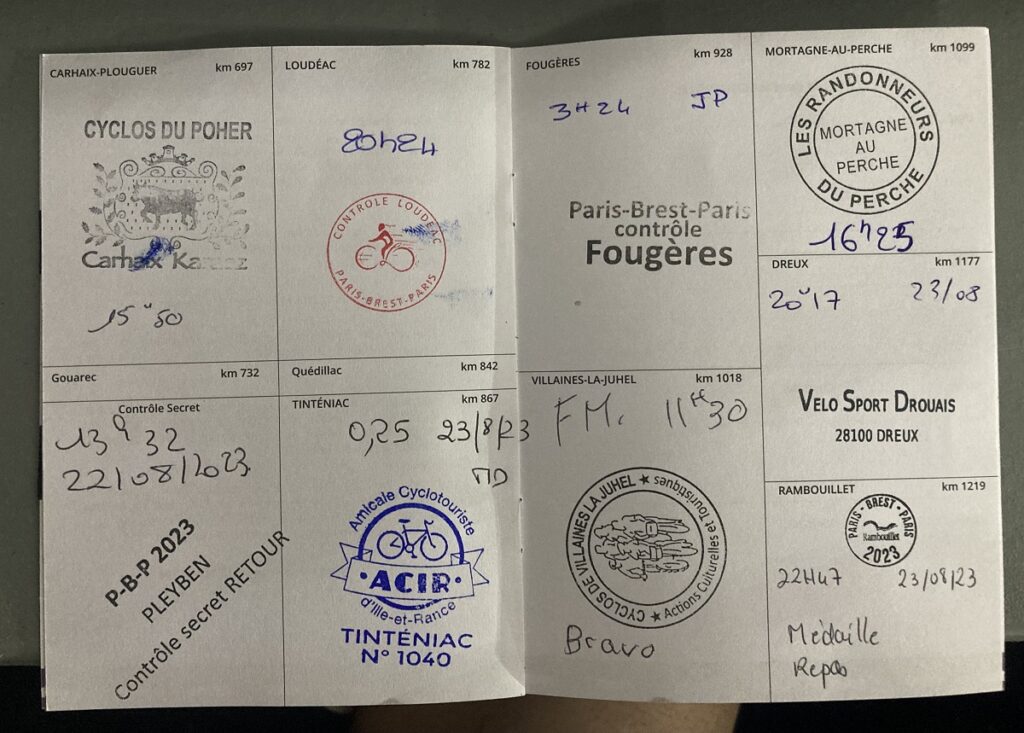 CARHAIX-PLOUGUER km 697
CYCLOS DU POHER
Carhaix
15 50
LOUDÉAC km 782
20h24
CONTROLE LOUDEAC
PARIS-BREST-PARIS
Gouarec km 732
Contrôle Secret
13 32
22/08/2023
P-B-P 2023
PLEYBEN
Contrôle secret RETOUR
Quédillac km 842
TINTÉNIAC km 867
0,25 23/8/23
MD
Amicale Cyclotouriste
ACIR
d'Ille-et-Rance
TINTÉNIAC
N° 1040
FOUGÈRES km 928
3H24 JP
Paris-Brest-Paris
contrôle
Fougères
VILLAINES-LA-JUHEL km 1018
FM. 11H30
CYCLOS DE VILLAINES LA JUHEL
Actions Culturelles et Touristiques
Bravo
MORTAGNE-AU-PERCHE km 1099
LES RANDONNEURS
MORTAGNE
AU
PERCHE
DU PERCHE
16h25
DREUX km 1177
20 17 23/08
VELO SPORT DROUAIS
28100 DREUX
RAMBOUILLET km 1219
PARIS-BREST-PARIS
Rambouillet
2023
22H47 23/08/23
Médaille
Repas